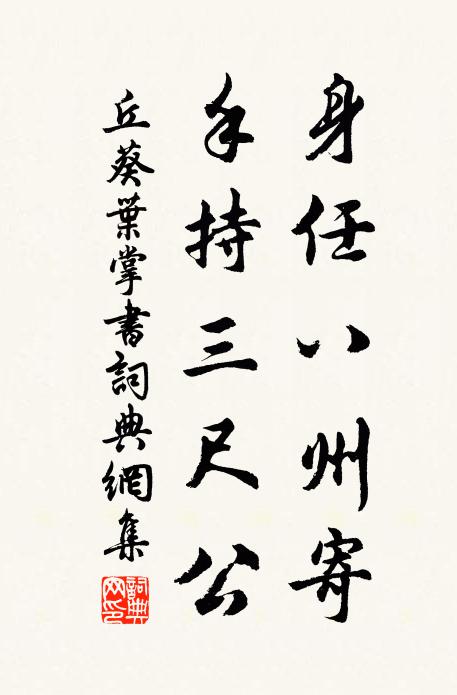 身任八州寄
手持三尺公
丘葵葉掌書詞典網集
詞典网印